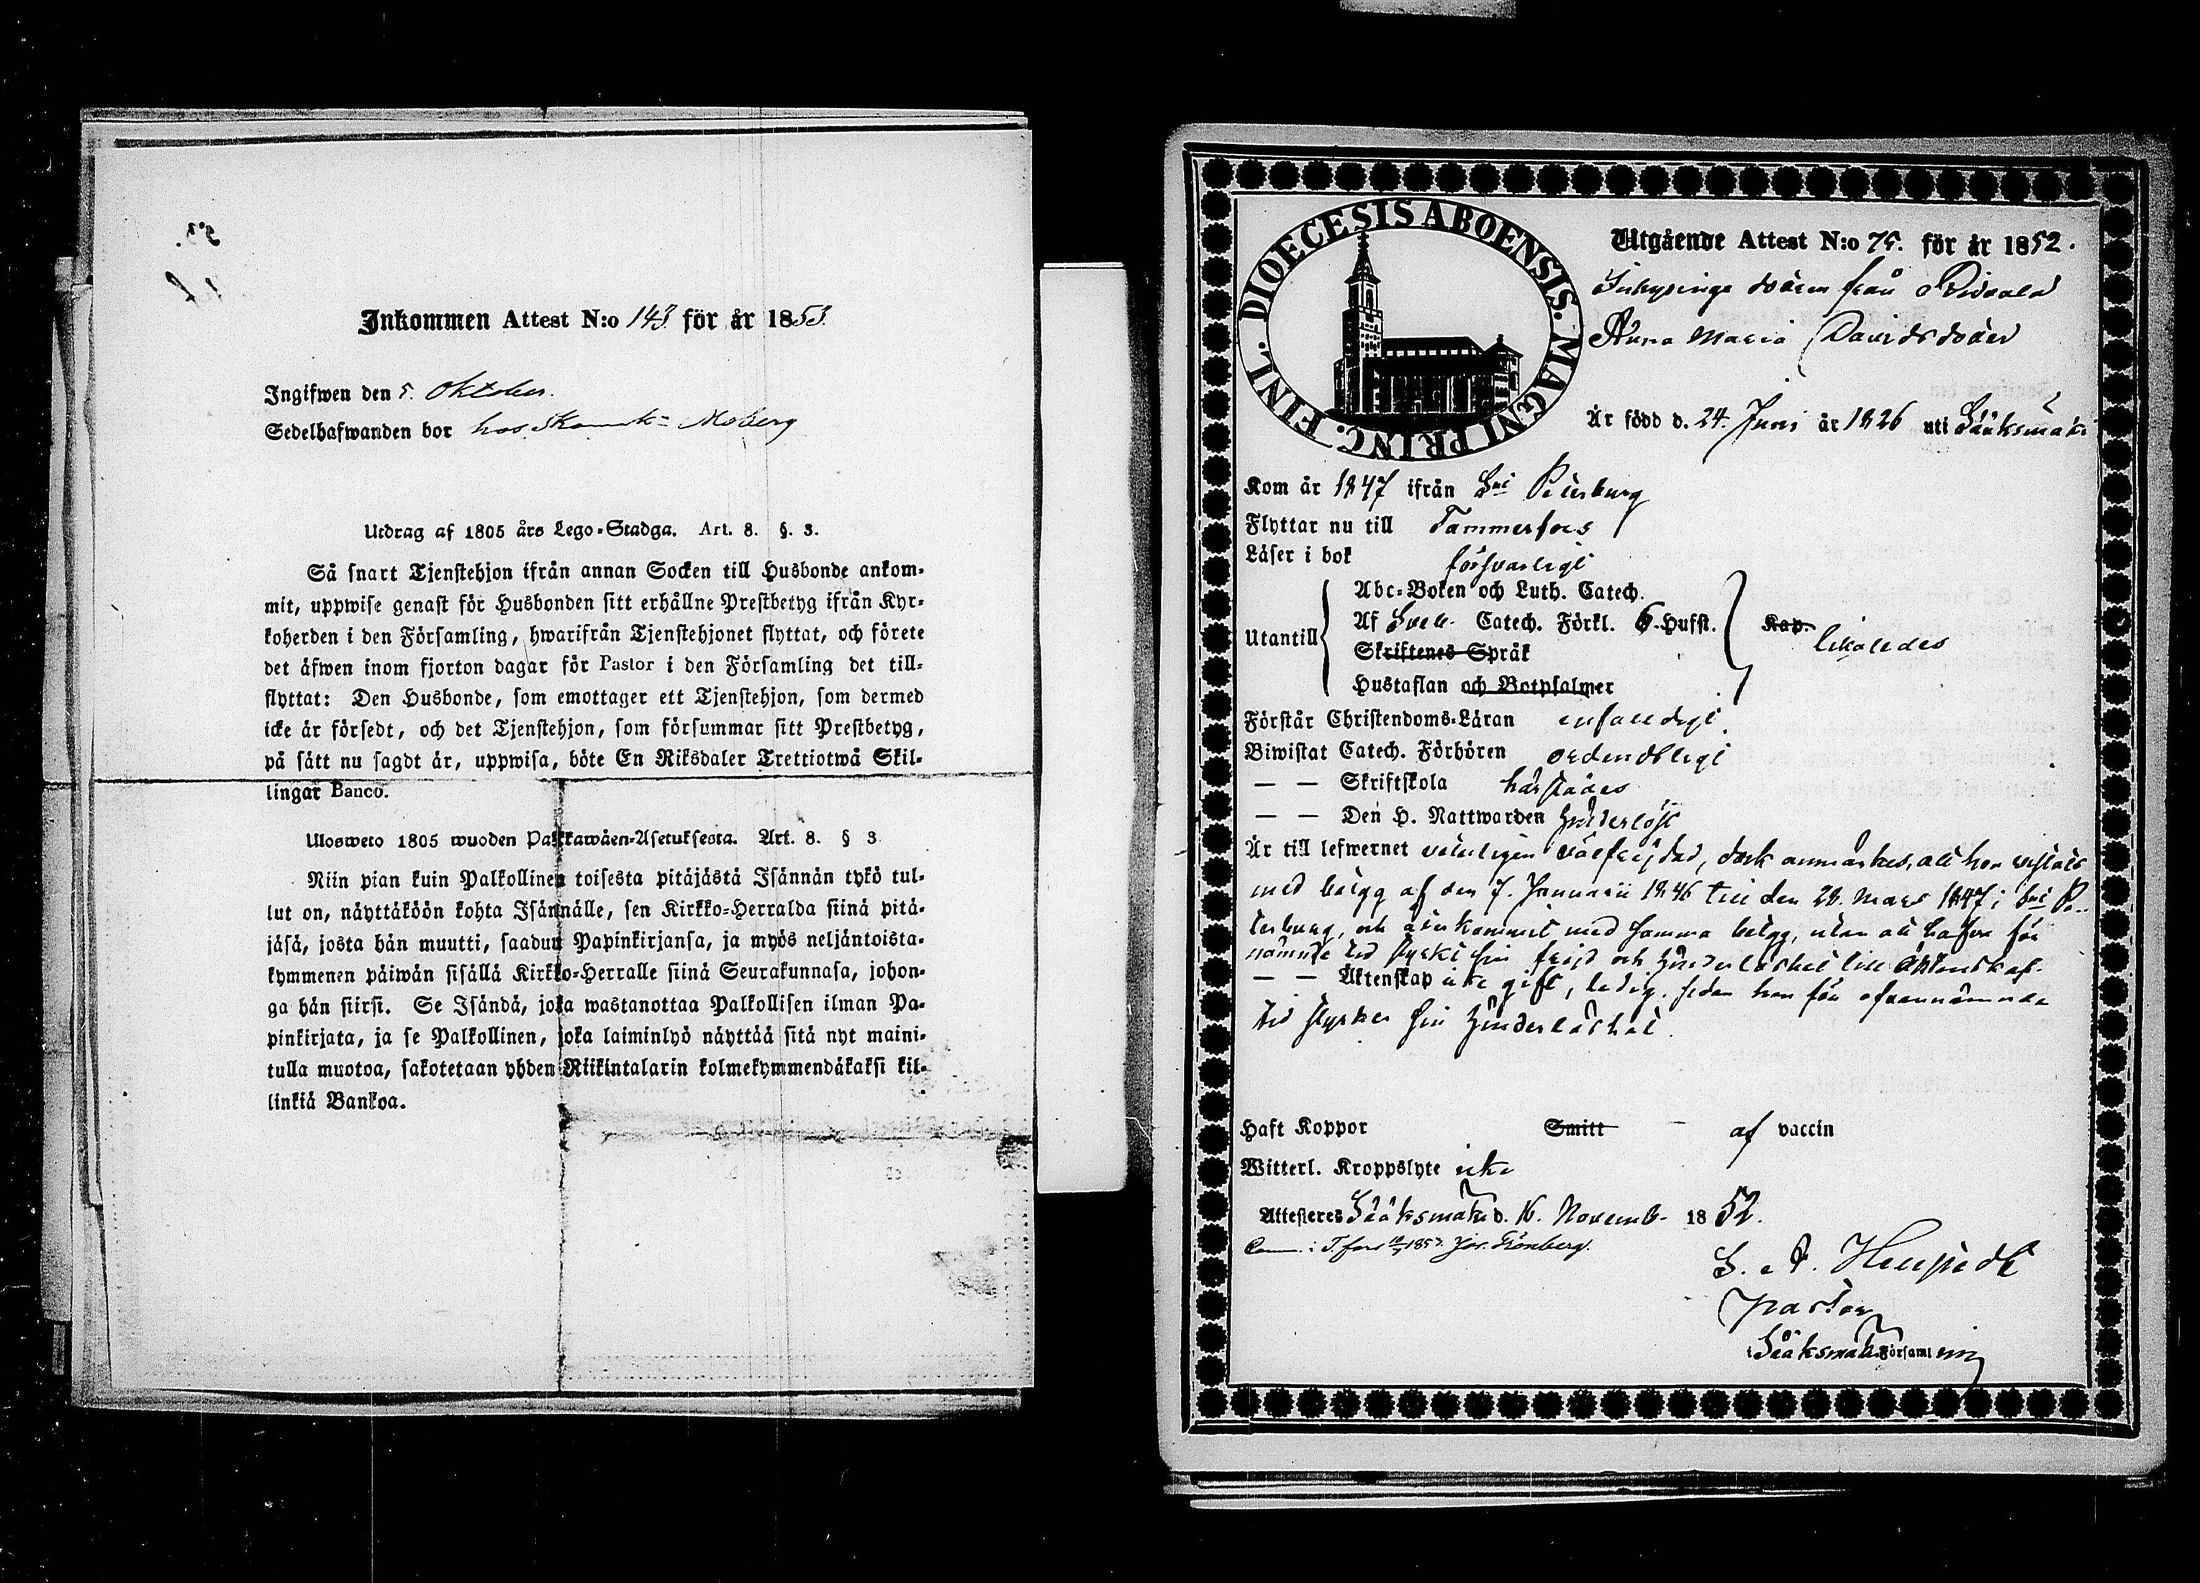 Inkommen Attest N:o 143 för år 1853.
Ingifwen den 5. Oktober.
Sedelhafwanden bor hos Moberg
Utdrag af 1805 års Lego-Stadga. Art. 8. §. 3.
Så snart Tjenstehjon ifrån annan Socken till Husbonde ankom-
mit, uppwise genast för Husbonden sitt erhållne Prestbetyg ifrån Kyr-
koherden i den Församling, hwarifrån Tjenstehjonet flyttat, och förete
det äfwen inom fjorton dagar för Pastor i den Församling det till-
flyttat: Den Husbonde, som emottager ett Tjenstehjon, som dermed
icke är försedt, och det Tjenstehjon, som försummar sitt Prestbetyg,
på sätt nu sagdt är, uppwisa, böte En Riksdaler Trettiotwå Skil-
lingar Banco.
Ulosweto 1805 wuoden Palkkawäen-Asetuksesta. Art. 8. § 3
Niin pian kuin Palkollinen toisesta pitäjästä Isännän tykö tul-
lut on, näyttäköön kohta Isännälle, sen Kirkko-Herralda siinä pitä-
jäsä, josta hän muutti, saadun Papinkirjansa, ja myös neljäntoista-
kymmenen päiwän sisällä Kirkko-Herralle siinä Seurakunnasa, johon-
ga hän siirsi. Se Isändä, joka wastanottaa Palkollisen ilman Pa-
pinkirjata, ja se Palkollinen, joka laiminlyö näyttää sitä nyt maini-
tulla muotoa, sakotetaan yhden Riikintalarin kolmekymmendäkaksi kil-
linkiä Bankoa.
DIOECESIS ABOENSIS. MAGNI PRINC. FINL.
Utgående Attest N:o 75. för år 1852.
Inhysinge dottren från Ridvala
Anna Maria Davidsdotter
Är född d. 24. Juni år 1826 uti Sääksmäki
Kom år 1847 ifrån S:t Petersburg
Flyttar nu till Tammerfors
Läser i bok försvarligt
Abc-Boken och Luth. Catech.
Utantill Af Sveb. Catech. Förkl. 6. Hufst. Kap. likaledes
Skriftenes Språk
Hustaflan och Botpsalmer
Förstår Christendoms-Läran enfaldigt
Biwistat Catech. Förhören ordentligt
— — Skriftskola härstädes
— — Den H. Nattwarden hinderlöst
Är till lefwernet veterligen välfrejdad, dock anmärkes, att hon vistats
med betyg af den 7. Januarii 1846 till den 28. Mars 1847 i S:t Pe-
tersburg, och återkommit med samma betyg, utan att hafva för
nämnde tid styrkt sin frejd och hinderlöshet till äktenskap.
— — Äktenskap icke gift, ledig, sedan hon för ofvannämnde
tid styrker sin hinderlöshet.
Haft Koppor Smitt af vaccin
Witterl. Kroppslyte icke
Attesteres Sääksmäki d. 16. Novemb. 1852.
Comm. i T.fors 1853. Jos. Grönberg.
Pastor
i Sääksmäki Församling